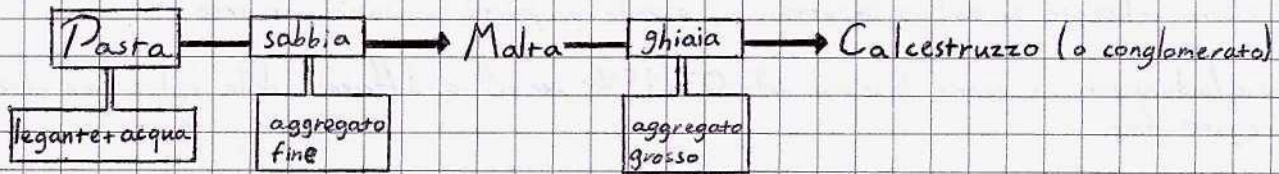 Pasta sabbia Malta ghiaia Calcestruzzo (o conglomerato)
legante+acqua
aggregato
fine
aggregato
grosso